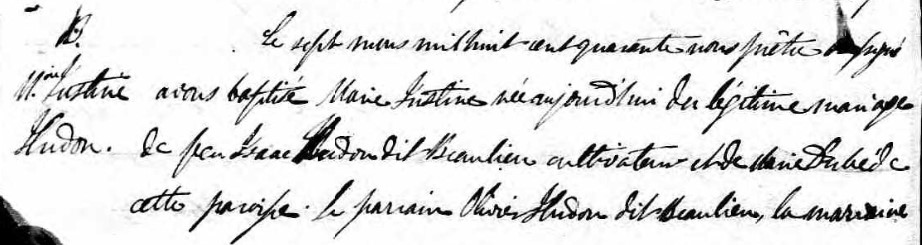 B.
Le sept mars mil huit cent quarante nous prêtre soussigné
M.ie Justine avons baptisé Marie Justine née aujourd'hui du légitime mariage
Hudon. de feu Isaac Hudon dit Beaulieu cultivateur et de Marie Dubé de
cette paroisse. Le parrain Olivier Hudon dit Beaulieu, la marraine